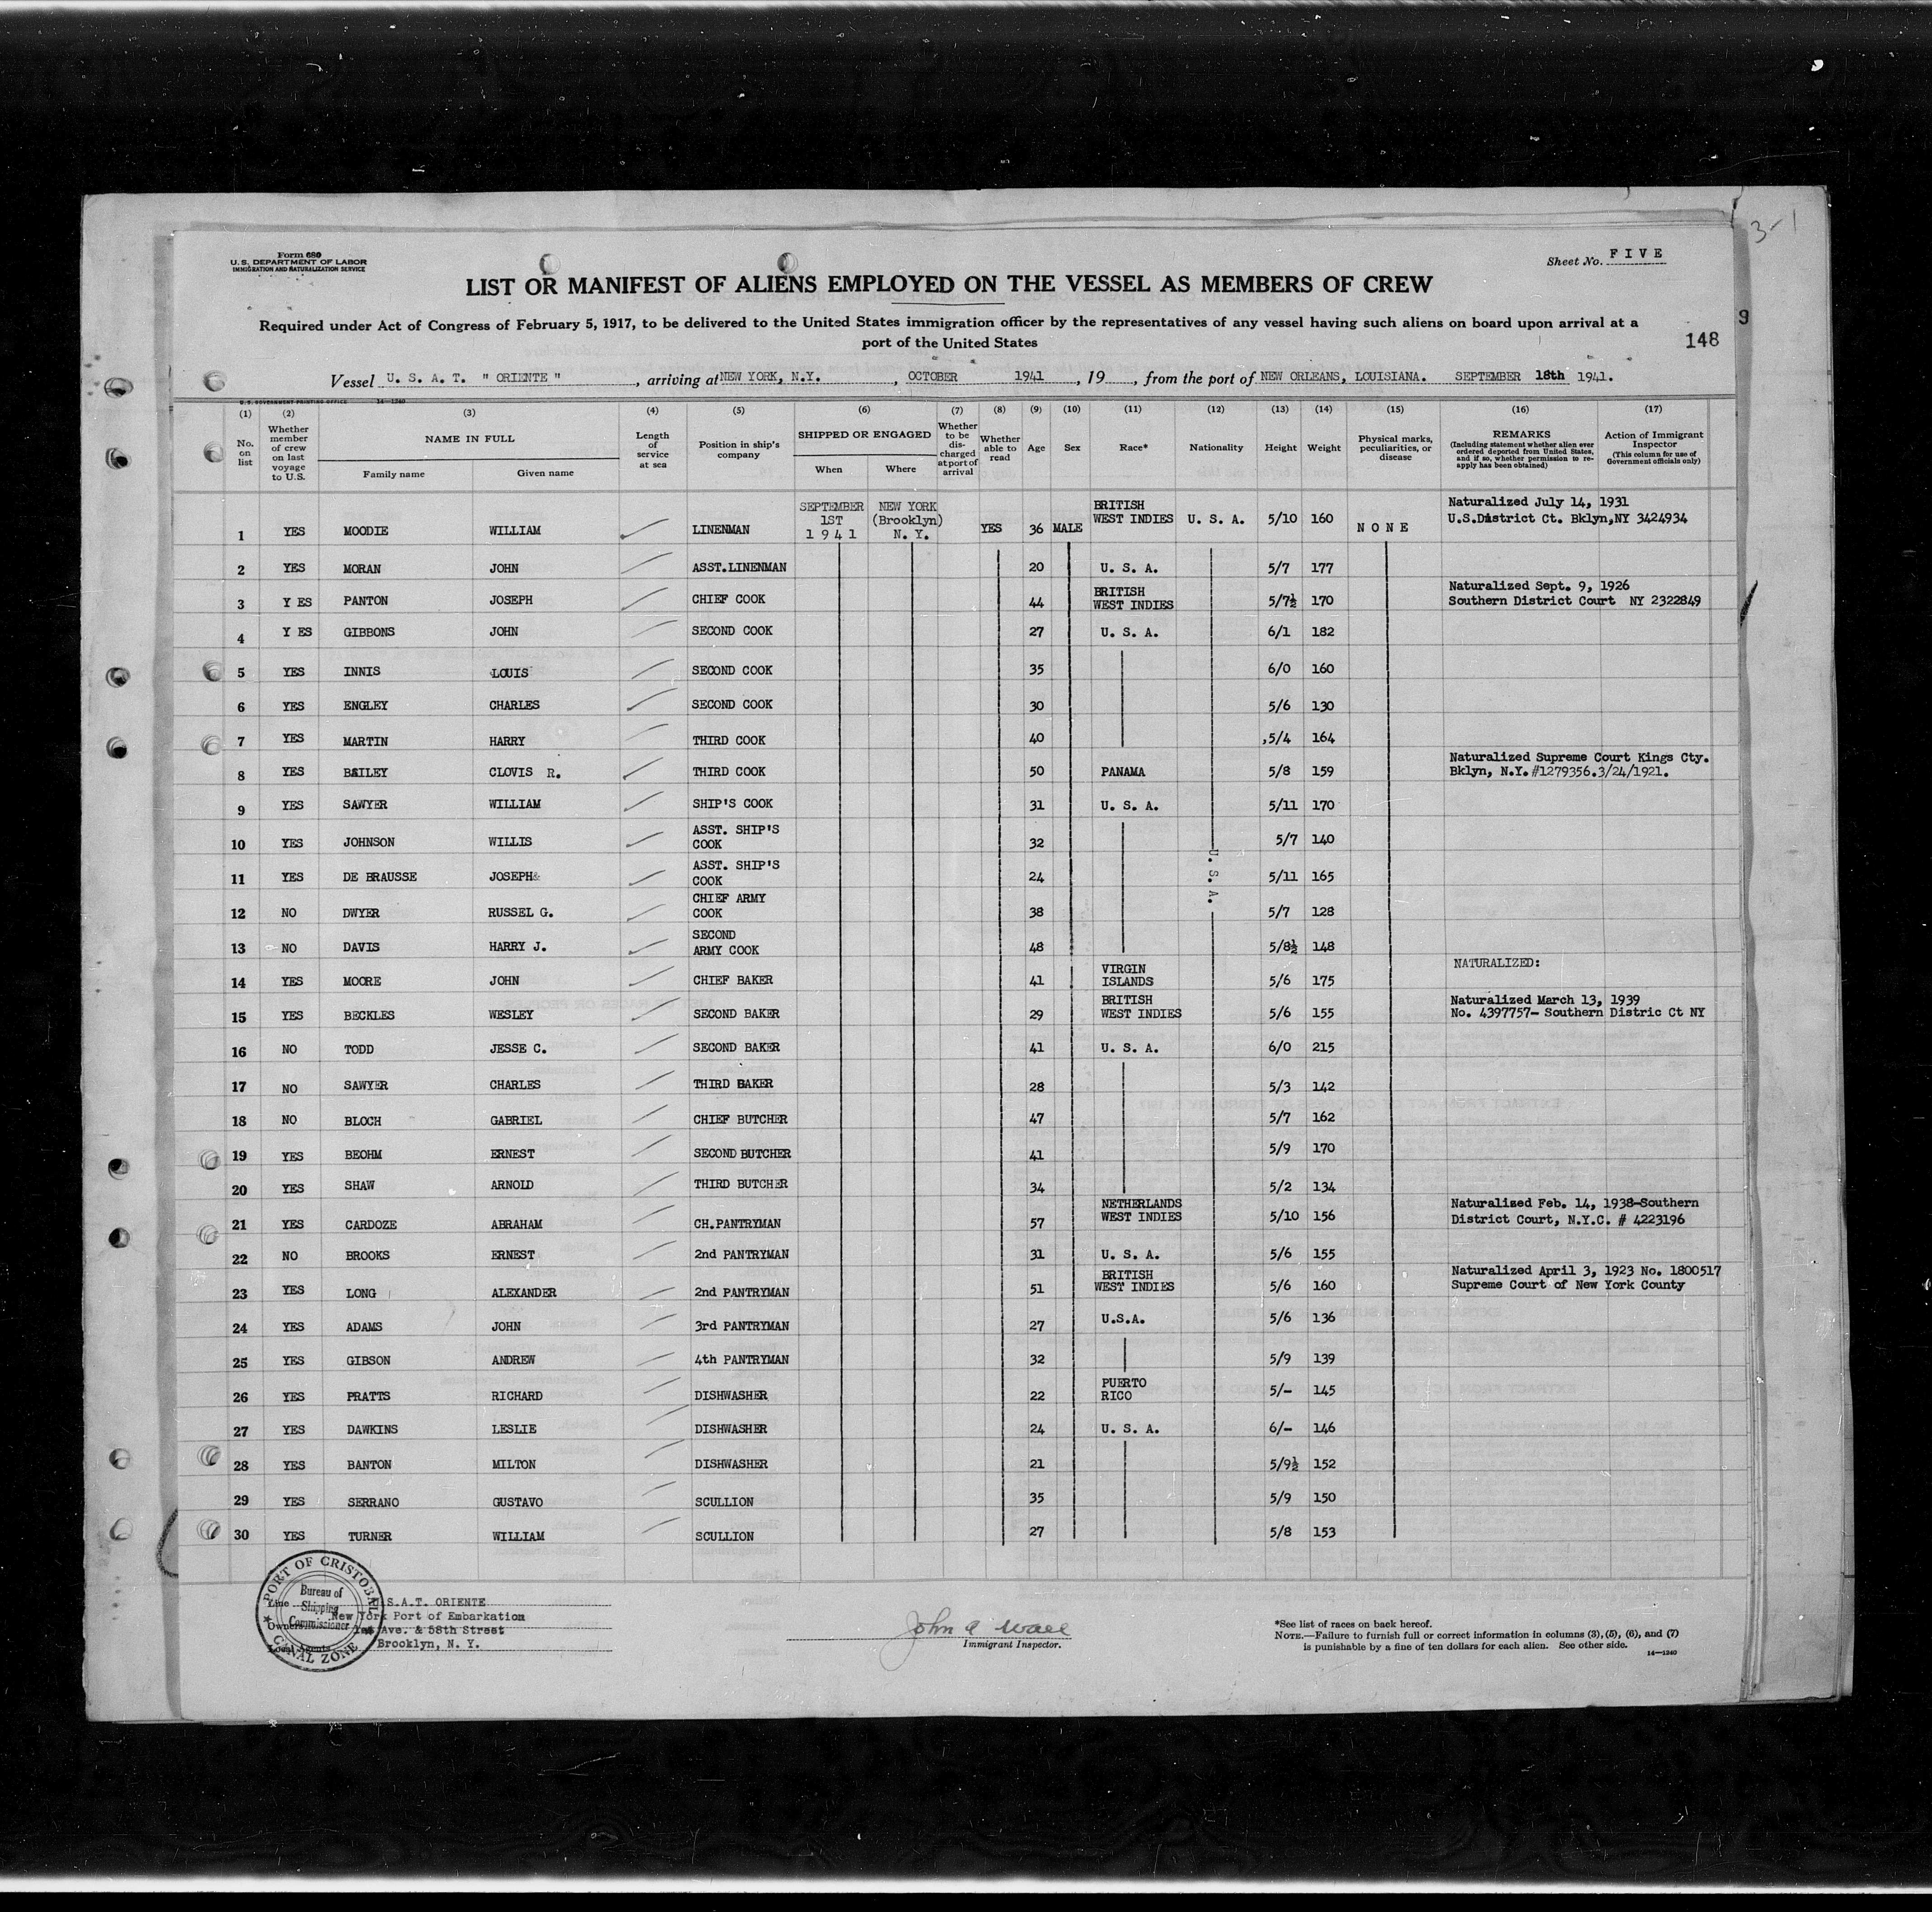 3-1
Form 680
U.S. DEPARTMENT OF LABOR
IMMIGRATION AND NATURALIZATION SERVICE
Sheet No. FIVE
LIST OR MANIFEST OF ALIENS EMPLOYED ON THE VESSEL AS MEMBERS OF CREW
Required under Act of Congress of February 5, 1917, to be delivered to the United States immigration officer by the representatives of any vessel having such aliens on board upon arrival at a
port of the United States
9
148
Vessel U. S. A. T. " ORIENTE ", arriving at NEW YORK, N.Y., OCTOBER 1941, 19, from the port of NEW ORLEANS, LOUISIANA. SEPTEMBER 18th 1941.
U.S. GOVERNMENT PRINTING OFFICE 14—1240
(1) (2) (3) (4) (5) (6) (7) (8) (9) (10) (11) (12) (13) (14) (15) (16) (17)
No. on list
Whether member of crew on last voyage to U.S.
NAME IN FULL
Family name Given name
Length of service at sea
Position in ship's company
SHIPPED OR ENGAGED
When Where
Whether to be discharged at port of arrival
Whether able to read
Age
Sex
Race*
Nationality
Height
Weight
Physical marks, peculiarities, or disease
REMARKS
(Including statement whether alien ever ordered deported from United States, and if so, whether permission to re-apply has been obtained)
Action of Immigrant Inspector
(This column for use of Government officials only)
1 YES MOODIE WILLIAM LINENMAN SEPTEMBER 1ST 1941 NEW YORK (Brooklyn) N. Y. YES 36 MALE BRITISH WEST INDIES U. S. A. 5/10 160 NONE Naturalized July 14, 1931 U.S.District Ct. Bklyn,NY 3424934
2 YES MORAN JOHN ASST.LINENMAN 20 U. S. A. 5/7 177
3 Y ES PANTON JOSEPH CHIEF COOK 44 BRITISH WEST INDIES 5/7½ 170 Naturalized Sept. 9, 1926 Southern District Court NY 2322849
4 Y ES GIBBONS JOHN SECOND COOK 27 U. S. A. 6/1 182
5 YES INNIS LOUIS SECOND COOK 35 6/0 160
6 YES ENGLEY CHARLES SECOND COOK 30 5/6 130
7 YES MARTIN HARRY THIRD COOK 40 5/4 164
8 YES BAILEY CLOVIS R. THIRD COOK 50 PANAMA 5/8 159 Naturalized Supreme Court Kings Cty. Bklyn, N.Y. #1279356.3/24/1921.
9 YES SAWYER WILLIAM SHIP'S COOK 31 U. S. A. 5/11 170
10 YES JOHNSON WILLIS ASST. SHIP'S COOK 32 5/7 140
11 YES DE BRAUSSE JOSEPH ASST. SHIP'S COOK 24 U. S. A. 5/11 165
12 NO DWYER RUSSEL G. CHIEF ARMY COOK 38 5/7 128
13 NO DAVIS HARRY J. SECOND ARMY COOK 48 5/8½ 148
14 YES MOORE JOHN CHIEF BAKER 41 VIRGIN ISLANDS 5/6 175 NATURALIZED:
15 YES BECKLES WESLEY SECOND BAKER 29 BRITISH WEST INDIES 5/6 155 Naturalized March 13, 1939 No. 4397757- Southern Distric Ct NY
16 NO TODD JESSE C. SECOND BAKER 41 U. S. A. 6/0 215
17 NO SAWYER CHARLES THIRD BAKER 28 5/3 142
18 NO BLOCH GABRIEL CHIEF BUTCHER 47 5/7 162
19 YES BEOHM ERNEST SECOND BUTCHER 41 5/9 170
20 YES SHAW ARNOLD THIRD BUTCHER 34 5/2 134
21 YES CARDOZE ABRAHAM CH.PANTRYMAN 57 NETHERLANDS WEST INDIES 5/10 156 Naturalized Feb. 14, 1938-Southern District Court, N.Y.C. # 4223196
22 NO BROOKS ERNEST 2nd PANTRYMAN 31 U. S. A. 5/6 155
23 YES LONG ALEXANDER 2nd PANTRYMAN 51 BRITISH WEST INDIES 5/6 160 Naturalized April 3, 1923 No. 1800517 Supreme Court of New York County
24 YES ADAMS JOHN 3rd PANTRYMAN 27 U.S.A. 5/6 136
25 YES GIBSON ANDREW 4th PANTRYMAN 32 5/9 139
26 YES PRATTS RICHARD DISHWASHER 22 PUERTO RICO 5/- 145
27 YES DAWKINS LESLIE DISHWASHER 24 U. S. A. 6/- 146
28 YES BANTON MILTON DISHWASHER 21 5/9½ 152
29 YES SERRANO GUSTAVO SCULLION 35 5/9 150
30 YES TURNER WILLIAM SCULLION 27 5/8 153
PORT OF CRISTOBAL
Bureau of Shipping Commissioner
CANAL ZONE
Line U.S.A.T. ORIENTE
New York Port of Embarkation
Owners 1st Ave. & 58th Street
Local Agents Brooklyn, N. Y.
John A Wall
Immigrant Inspector.
*See list of races on back hereof.
NOTE.—Failure to furnish full or correct information in columns (3), (5), (6), and (7)
is punishable by a fine of ten dollars for each alien. See other side.
14—1240